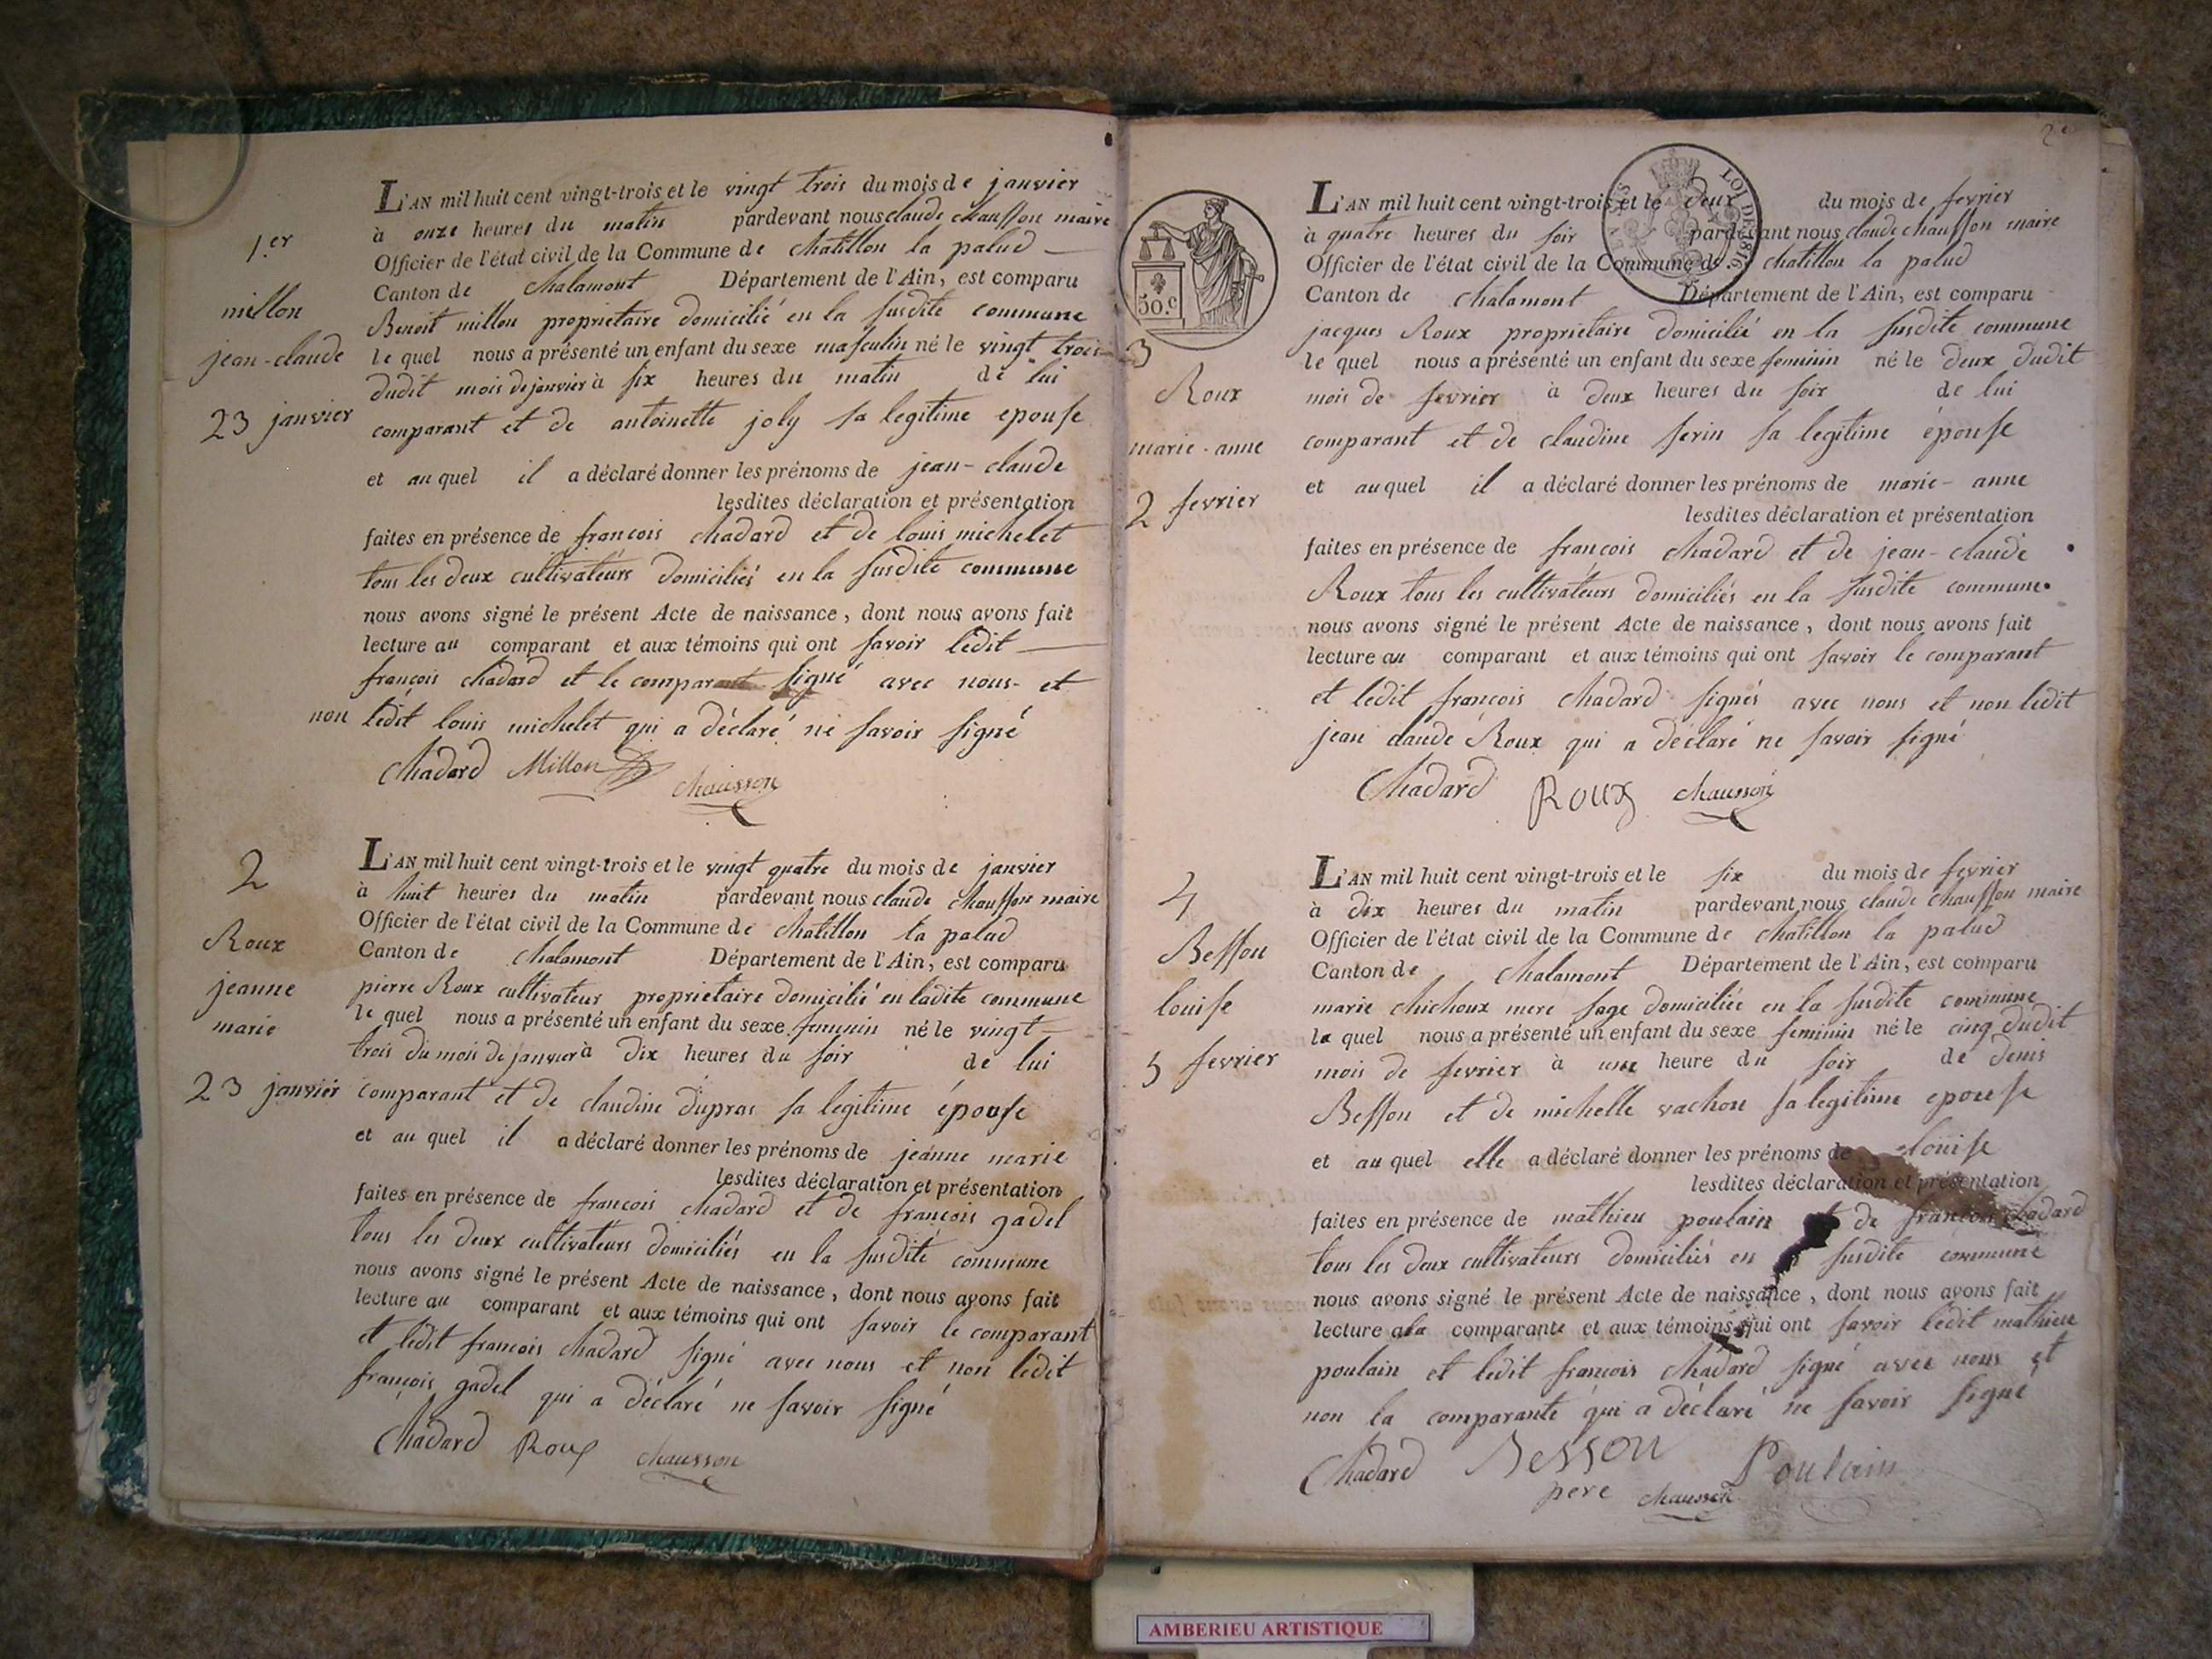 1.er
millon
jean-claude
23 janvier
L'AN mil huit cent vingt-trois et le vingt trois du mois de janvier
à onze heures du matin pardevant nous claude chausson maire
Officier de l'état civil de la Commune de chatillon la palud
Canton de chalamont Département de l'Ain, est comparu
Benoit millon proprietaire domicilié en la susdite commune
le quel nous a présenté un enfant du sexe masculin né le vingt trois
dudit mois de janvier à six heures du matin de lui
comparant et de antoinette joly sa legitime epouse
et au quel il a déclaré donner les prénoms de jean-claude
lesdites déclaration et présentation
faites en présence de francois chadard et de louis michelet
tous les deux cultivateurs domiciliés en la susdite commune
nous avons signé le présent Acte de naissance, dont nous avons fait
lecture au comparant et aux témoins qui ont savoir ledit
francois chadard et le comparant signé avec nous et
non ledit louis michelet qui a déclaré ne savoir signé
Chadard Millon chausson
2
Roux
jeanne
marie
23 janvier
L'AN mil huit cent vingt-trois et le vingt quatre du mois de janvier
à huit heures du matin pardevant nous claude chausson maire
Officier de l'état civil de la Commune de chatillon la palud
Canton de chalamont Département de l'Ain, est comparu
pierre Roux cultivateur proprietaire domicilié en ladite commune
le quel nous a présenté un enfant du sexe feminin né le vingt
trois du mois de janvier à dix heures du soir de lui
comparant et de claudine dupras sa legitime épouse
et au quel il a déclaré donner les prénoms de jeanne marie
lesdites déclaration et présentation
faites en présence de francois chadard et de francois gadel
tous les deux cultivateurs domiciliés en la susdite commune
nous avons signé le présent Acte de naissance, dont nous avons fait
lecture au comparant et aux témoins qui ont savoir le comparant
et ledit francois chadard signé avec nous et non ledit
francois gadel qui a déclaré ne savoir signé
Chadard Roux chausson
2e
LOI DE 1816
50.c
3
Roux
marie-anne
2 fevrier
L'AN mil huit cent vingt-trois et le deux du mois de fevrier
à quatre heures du soir pardevant nous claude chausson maire
Officier de l'état civil de la Commune de chatillon la palud
Canton de chalamont Département de l'Ain, est comparu
jacques Roux proprietaire domicilié en la susdite commune
le quel nous a présenté un enfant du sexe feminin né le deux dudit
mois de fevrier à deux heures du soir de lui
comparant et de claudine serin sa legitime épouse
et au quel il a déclaré donner les prénoms de marie-anne
lesdites déclaration et présentation
faites en présence de francois chadard et de jean-claude
Roux tous les cultivateurs domiciliés en la susdite commune
nous avons signé le présent Acte de naissance, dont nous avons fait
lecture au comparant et aux témoins qui ont savoir le comparant
et ledit francois chadard signés avec nous et non ledit
jean claude Roux qui a déclaré ne savoir signé
Chadard Roux chausson
4
Besson
louise
5 fevrier
L'AN mil huit cent vingt-trois et le six du mois de fevrier
à dix heures du matin pardevant nous claude chausson maire
Officier de l'état civil de la Commune de chatillon la palud
Canton de chalamont Département de l'Ain, est comparu
marie chichoux mere sage domiciliée en la susdite commune
la quel nous a présenté un enfant du sexe feminin né le cinq dudit
mois de fevrier à une heure du soir de denis
Besson et de michelle vachon sa legitime epouse
et au quel elle a déclaré donner les prénoms de louise
lesdites déclaration et présentation
faites en présence de mathieu poulain et de francois chadard
tous les deux cultivateurs domiciliés en susdite commune
nous avons signé le présent Acte de naissance, dont nous avons fait
lecture a la comparante et aux témoins qui ont savoir ledit mathieu
poulain et ledit francois chadard signé avec nous et
non la comparante qui a déclaré ne savoir signé
Chadard Besson Poulain
pere chausson
AMBERIEU ARTISTIQUE